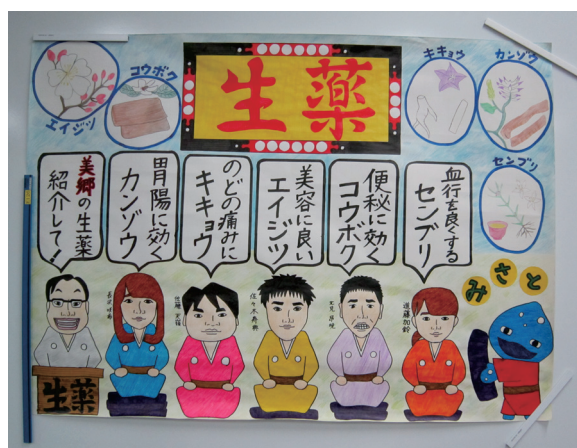 生薬
エイジツ
コウボク
キキョウ
カンゾウ
センブリ
血行を良くする
センブリ
便秘に効く
コウボク
美容に良い
エイジツ
のどの痛みに
キキョウ
胃陽に効く
カンゾウ
美郷の生薬
紹介して!
みさと
生薬